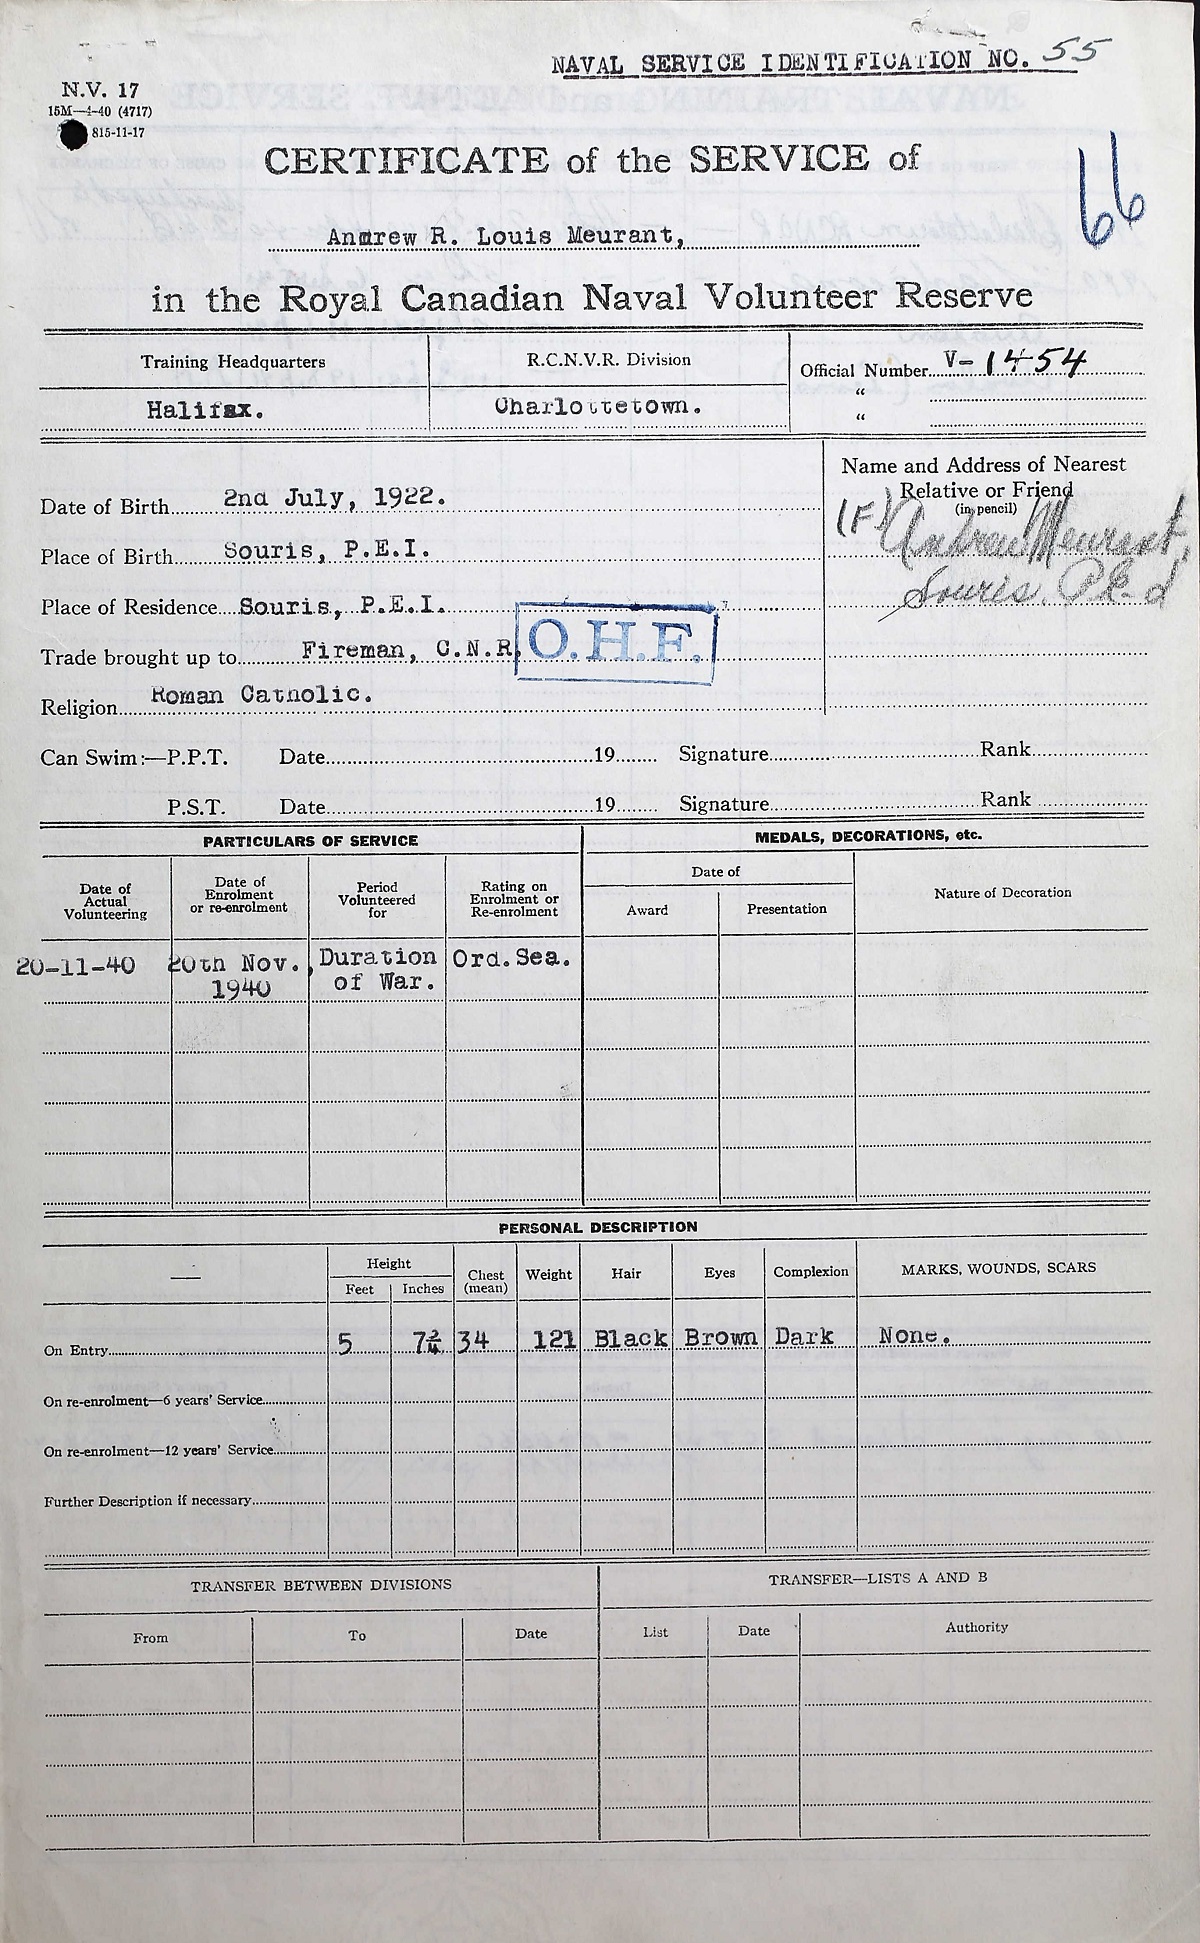 NAVAL SERVICE IDENTIFICATION NO. 55
N.V. 17
15M—4-40 (4717)
815-11-17
CERTIFICATE of the SERVICE of
66
Andrew R. Louis Meurant,
in the Royal Canadian Naval Volunteer Reserve
Training Headquarters
Halifax.
R.C.N.V.R. Division
Charlottetown.
Official Number V-1454
“
“
Date of Birth 2nd July, 1922.
Place of Birth Souris, P.E.I.
Place of Residence Souris, P.E.I.
Trade brought up to Fireman, C.N.R.
O.H.F.
Religion Roman Catholic.
Name and Address of Nearest
Relative or Friend
(in pencil)
(F) Andrew Meurant,
Souris. P.E.I
Can Swim:—P.P.T. Date 19 Signature Rank
P.S.T. Date 19 Signature Rank
PARTICULARS OF SERVICE
MEDALS, DECORATIONS, etc.
Date of
Actual
Volunteering
Date of
Enrolment
or re-enrolment
Period
Volunteered
for
Rating on
Enrolment or
Re-enrolment
Date of
Award
Presentation
Nature of Decoration
20-11-40
20th Nov.,
1940
Duration
of War.
Ord. Sea.
PERSONAL DESCRIPTION
—
Height
Feet
Inches
Chest
(mean)
Weight
Hair
Eyes
Complexion
MARKS, WOUNDS, SCARS
On Entry 5 7¾ 34 121 Black Brown Dark None.
On re-enrolment—6 years' Service
On re-enrolment—12 years' Service
Further Description if necessary
TRANSFER BETWEEN DIVISIONS
TRANSFER—LISTS A AND B
From
To
Date
List
Date
Authority